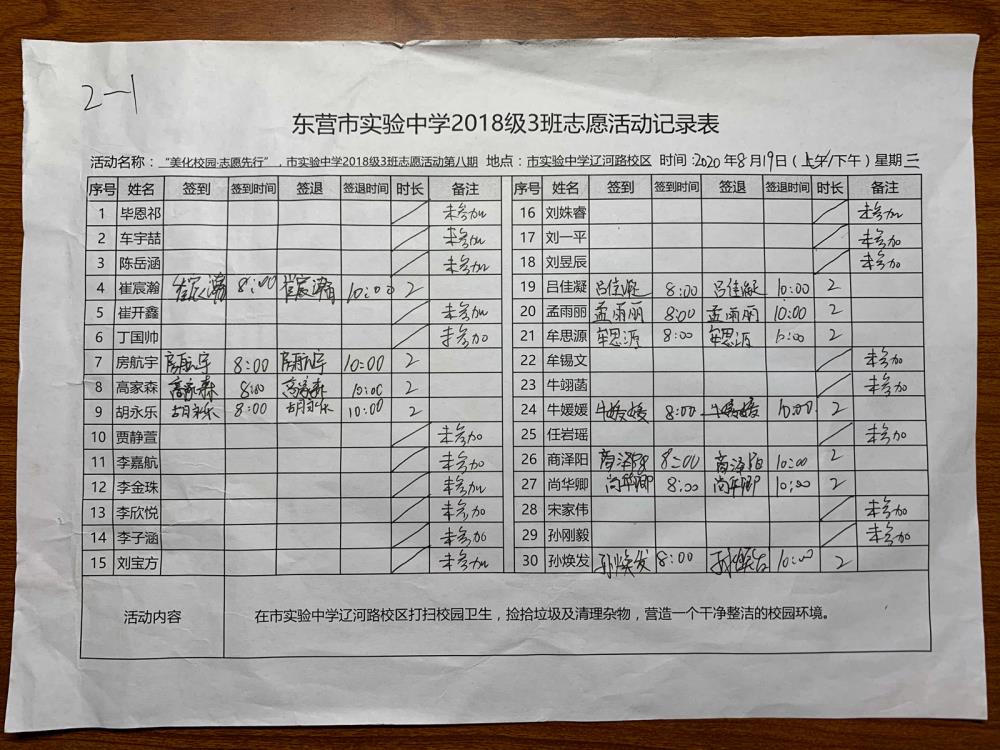 2-1
东营市实验中学2018级3班志愿活动记录表
活动名称："美化校园·志愿先行"，市实验中学2018级3班志愿活动第八期 地点：市实验中学辽河路校区 时间:2020年8月19日（上午/下午）星期三
序号 姓名 签到 签到时间 签退 签退时间 时长 备注 序号 姓名 签到 签到时间 签退 签退时间 时长 备注
1 毕恩祁 未参加 16 刘姝睿 未参加
2 车宇喆 未参加 17 刘一平 未参加
3 陈岳涵 未参加 18 刘昱辰 未参加
4 崔宸瀚 崔宸瀚 8:00 崔宸瀚 10:00 2 19 吕佳凝 吕佳凝 8:00 吕佳凝 10:00 2
5 崔开鑫 未参加 20 孟雨丽 孟雨丽 8:00 孟雨丽 10:00 2
6 丁国帅 未参加 21 牟思源 牟思源 8:00 牟思源 10:00 2
7 房航宇 房航宇 8:00 房航宇 10:00 2 22 牟锡文 未参加
8 高家森 高家森 8:00 高家森 10:00 2 23 牛翊菡 未参加
9 胡永乐 胡永乐 8:00 胡永乐 10:00 2 24 牛媛媛 牛媛媛 8:00 牛媛媛 10:00 2
10 贾静萱 未参加 25 任岩瑶 未参加
11 李嘉航 未参加 26 商泽阳 商泽阳 8:00 商泽阳 10:00 2
12 李金珠 未参加 27 尚华卿 尚华卿 8:00 尚华卿 10:00 2
13 李欣悦 未参加 28 宋家伟 未参加
14 李子涵 未参加 29 孙刚毅 未参加
15 刘宝方 未参加 30 孙焕发 孙焕发 8:00 孙焕发 10:00 2
活动内容 在市实验中学辽河路校区打扫校园卫生，捡拾垃圾及清理杂物，营造一个干净整洁的校园环境。